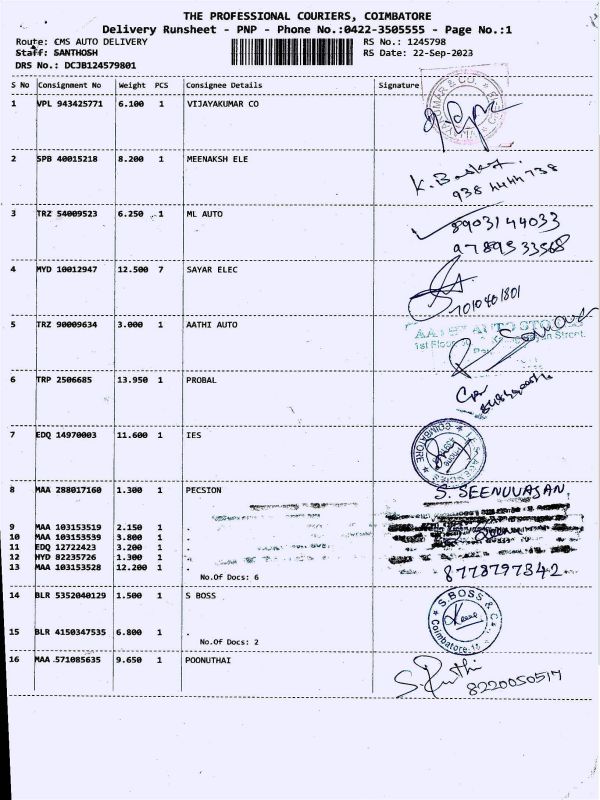 THE PROFESSIONAL COURIERS, COIMBATORE
Delivery Runsheet - PNP - Phone No.:0422-3505555 - Page No.:1
Route: CMS AUTO DELIVERY RS No.: 1245798
Staff: SANTHOSH RS Date: 22-Sep-2023
DRS No.: DCJB124579801
S No Consignment No Weight PCS Consignee Details Signature
1 VPL 943425771 6.100 1 VIJAYAKUMAR CO
2 SPB 40015218 8.200 1 MEENAKSH ELE
3 TRZ 54009523 6.250 1 ML AUTO 8903144033
4 MYD 10012947 12.500 7 SAYAR ELEC
7010401801
5 TRZ 90009634 3.000 1 AATHI AUTO
6 TRP 2506685 13.950 1 PROBAL
7 EDQ 14970003 11.600 1 IES
COIMBATORE
8 MAA 288017160 1.300 1 PECSION S. SEENUVASAN
9 MAA 103153519 2.150 1 .
10 MAA 103153539 3.800 1 .
11 EDQ 12722423 3.200 1 .
12 HYD 82235726 1.300 1 .
13 MAA 103153528 12.200 1 .
No.Of Docs: 6 8778797342
14 BLR 5352040129 1.500 1 S BOSS
S BOSS & Co
Coimbatore
15 BLR 4150347535 6.800 1 .
No.Of Docs: 2
16 MAA 571085635 9.650 1 POONUTHAI
8220050517